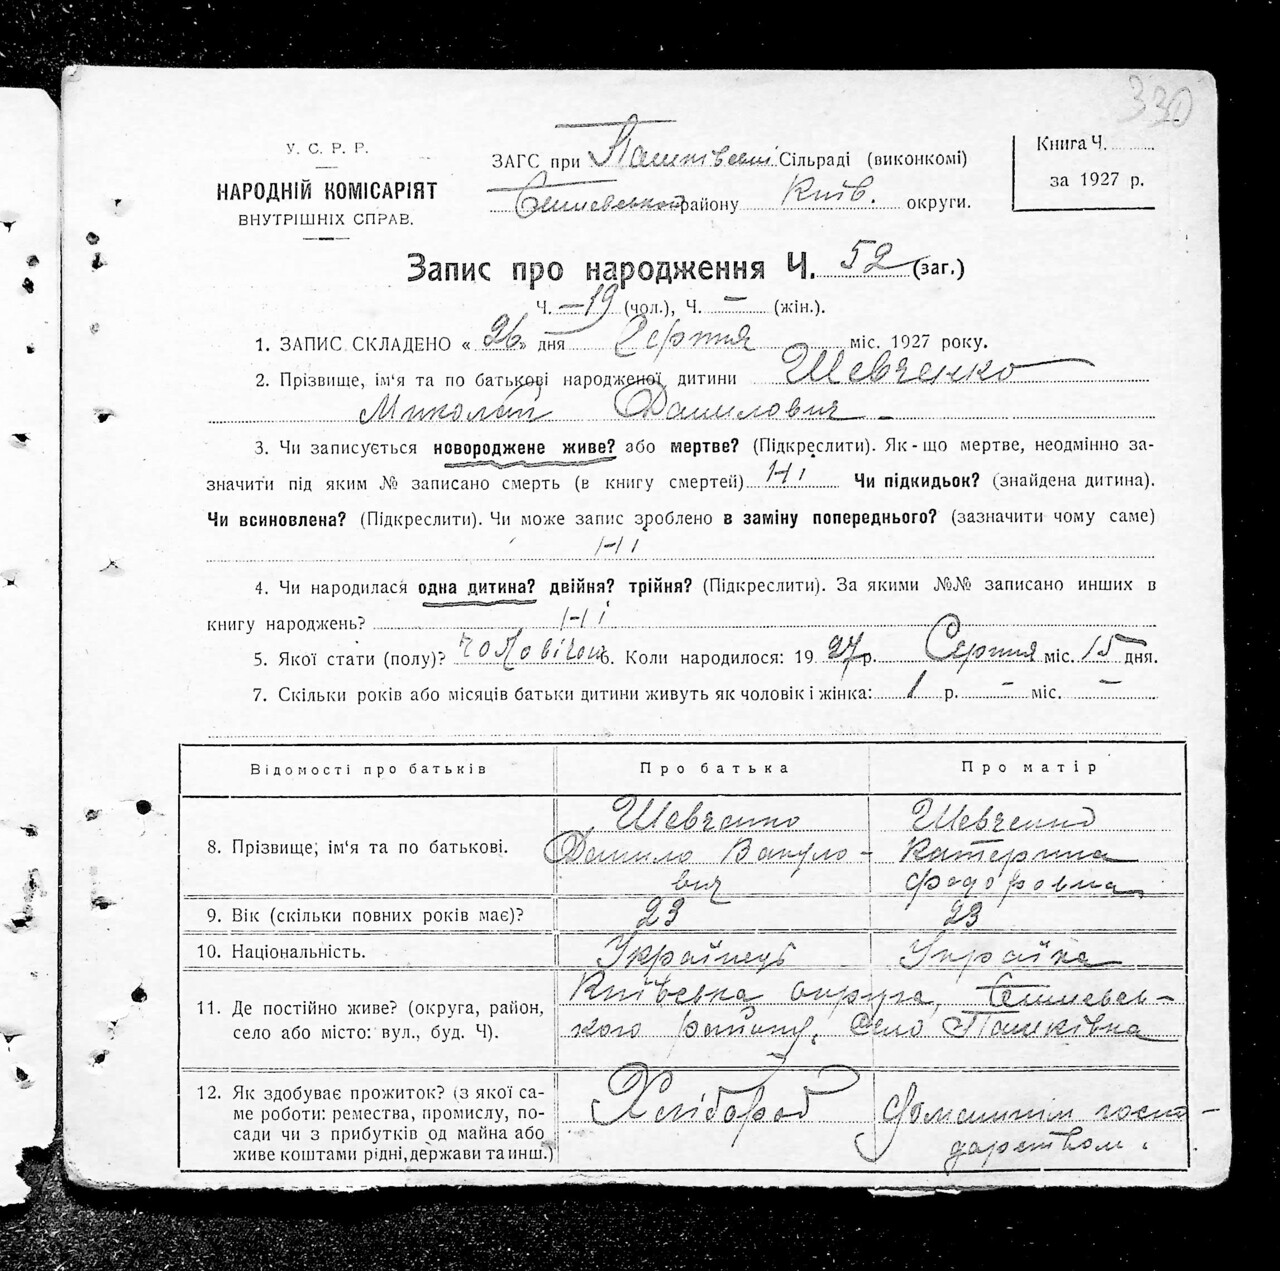 330
У. С. Р. Р.
НАРОДНІЙ КОМІСАРІЯТ
ВНУТРІШНІХ СПРАВ.
ЗАГС при Пашківські Сільраді (виконкомі)
району Київ. округи.
Книга Ч.
за 1927 р.
Запис про народження Ч. 52 (заг.)
Ч. —19 (чол.), Ч. — (жін.).
1. ЗАПИС СКЛАДЕНО « 26 » дня Серпня міс. 1927 року.
2. Прізвище, ім'я та по батькові народженої дитини Шевченко
Миколай Данилович
3. Чи записується новороджене живе? або мертве? (Підкреслити). Як-що мертве, неодмінно за-
значити під яким № записано смерть (в книгу смертей) Ні Чи підкидьок? (знайдена дитина).
Чи всиновлена? (Підкреслити). Чи може запис зроблено в заміну попереднього? (зазначити чому саме)
Ні
4. Чи народилася одна дитина? двійня? трійня? (Підкреслити). За якими №№ записано инших в
книгу народжень? Ні
5. Якої стати (полу)? чоловічої 6. Коли народилося: 1927 р. Серпня міс. 15 дня.
7. Скільки років або місяців батьки дитини живуть як чоловік і жінка: 1 р. — міс. —
Відомості про батьків Про батька Про матір
8. Прізвище, ім'я та по батькові.
Шевченко
Данило Вакуло-
вич
Шевченко
Катерина
Федоровна
9. Вік (скільки повних років має)? 23 23
10. Національність. Українець Українка
11. Де постійно живе? (округа, район,
село або місто: вул., буд. Ч).
Київська округа,
кого району, село Пашківка
12. Як здобуває прожиток? (з якої са-
ме роботи: ремества, промислу, по-
сади чи з прибутків од майна або
живе коштами рідні, держави та инш.)
Хлібороб
Домашнім госпо-
дарством.